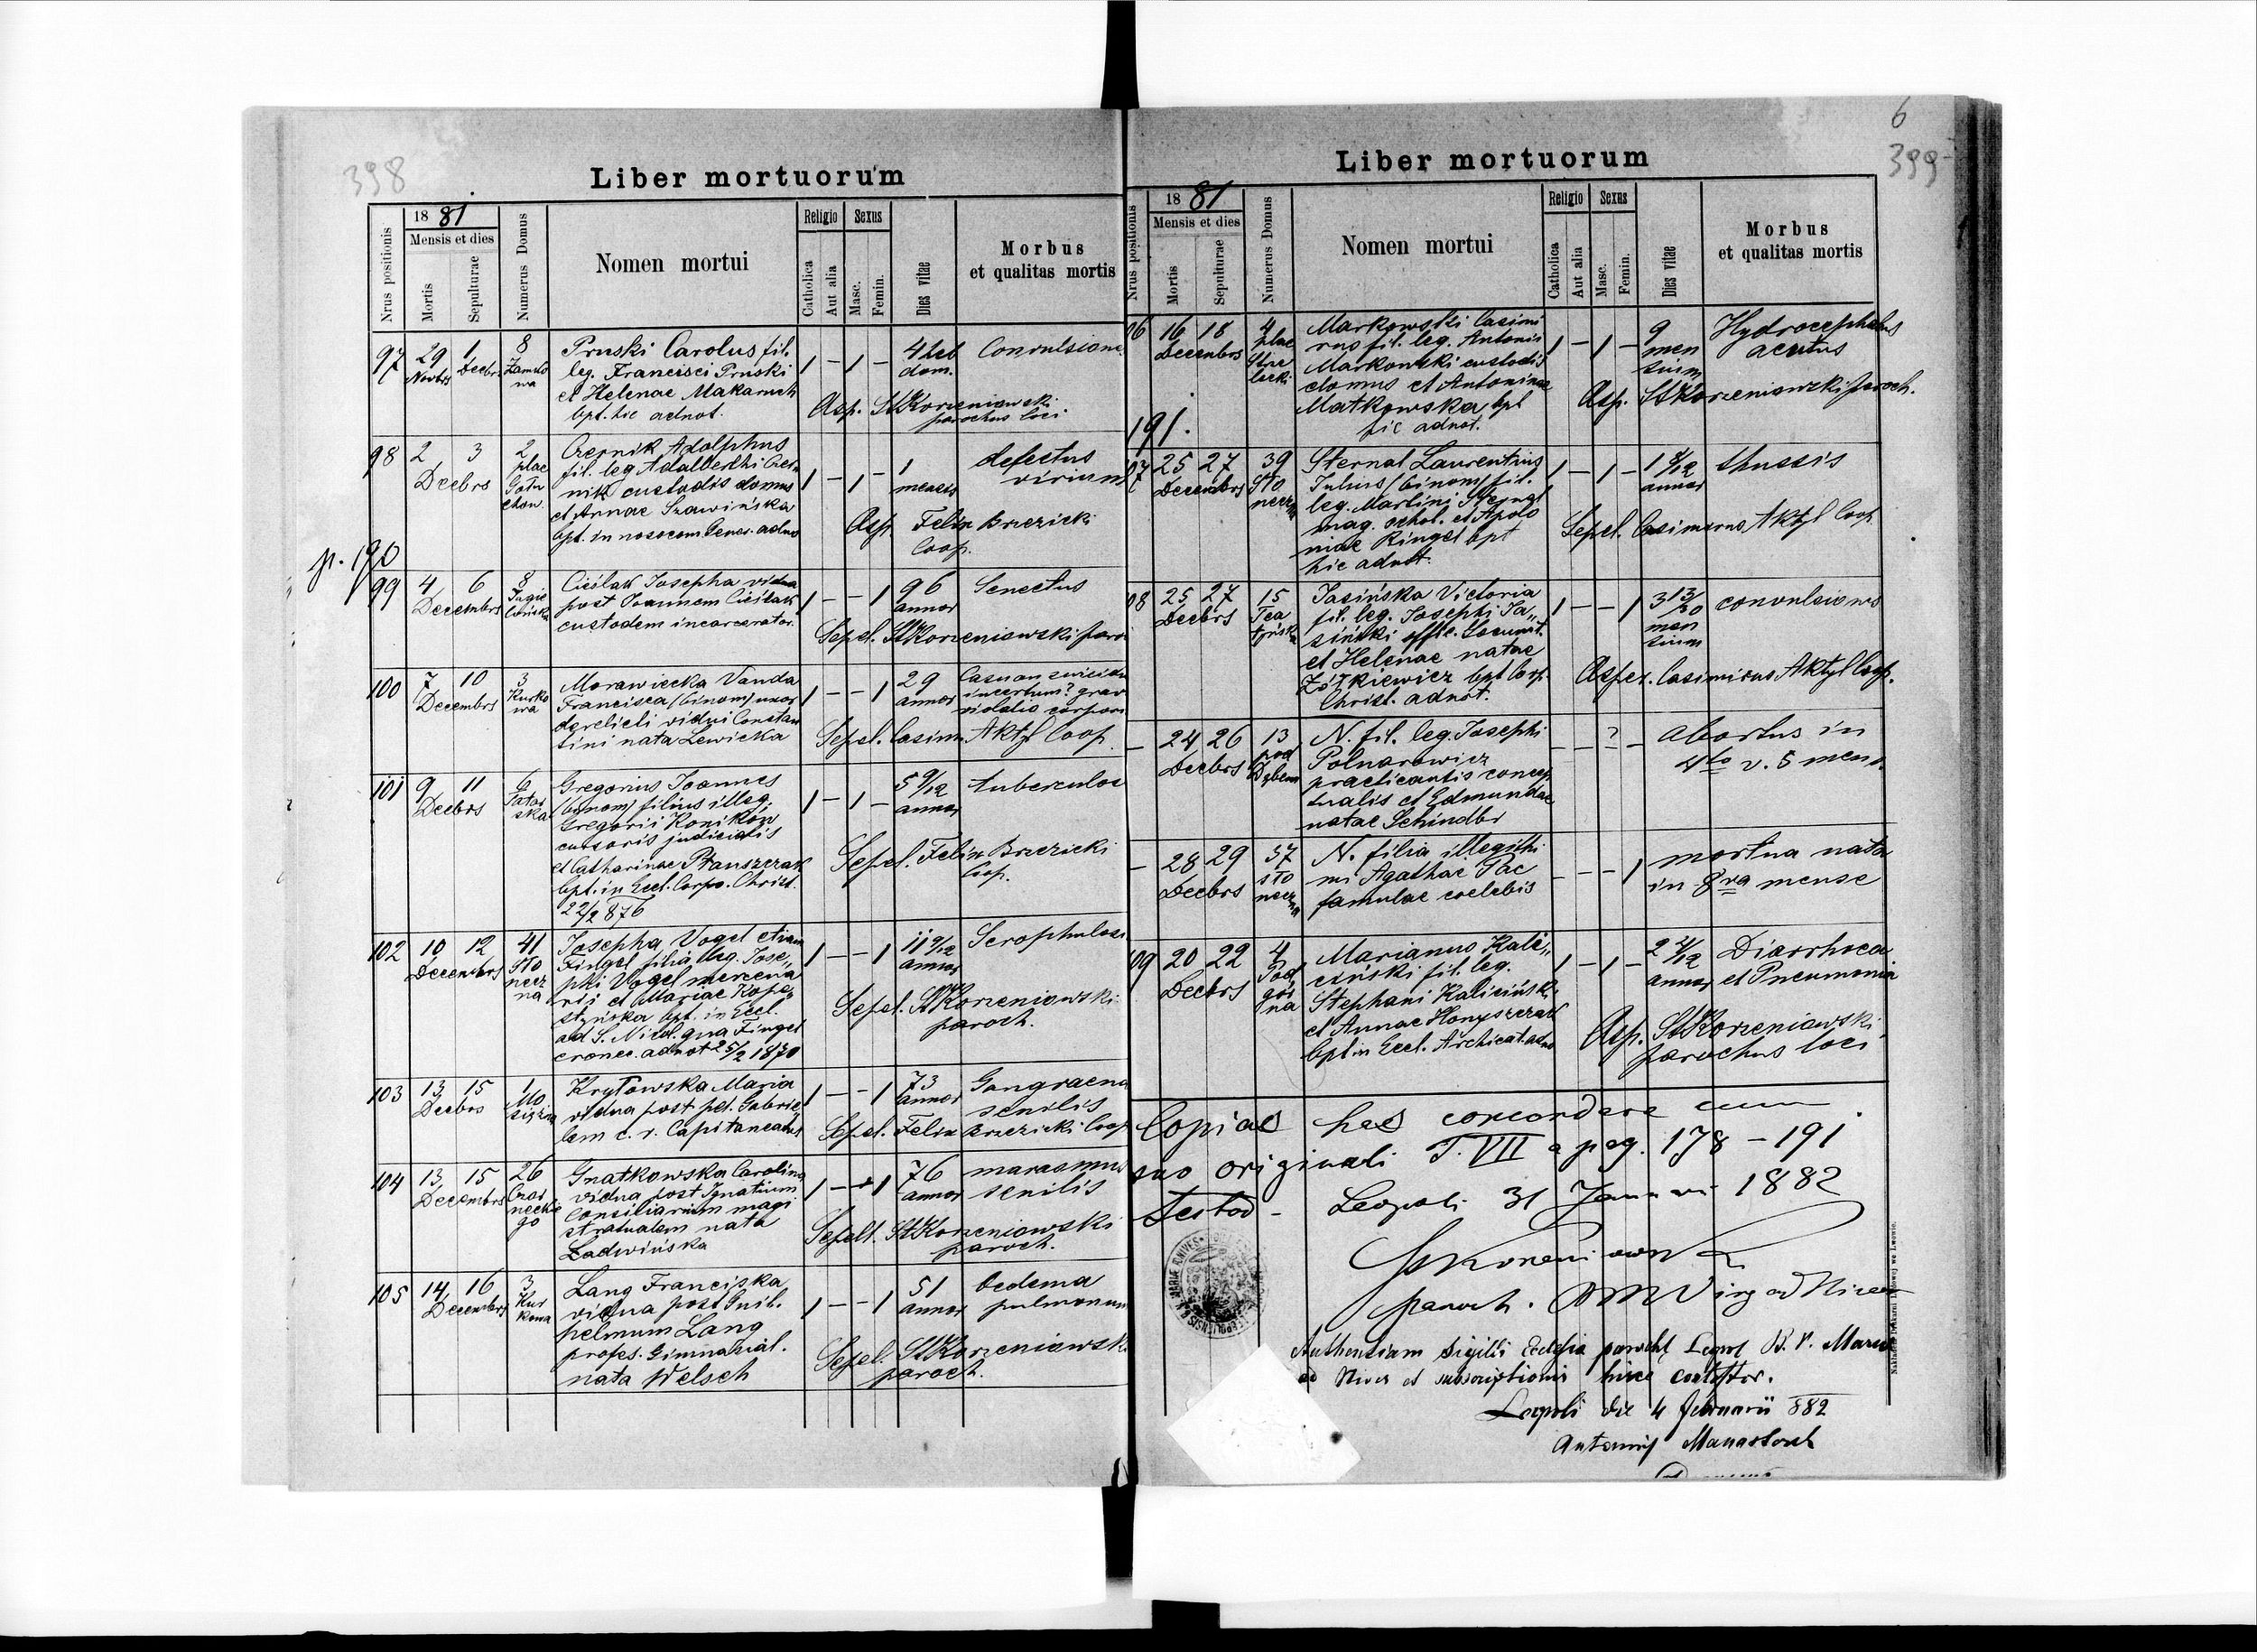 398
Liber mortuorum
Nrus positionis
1881
Mensis et dies
Mortis
Sepulturae
Numerus Domus
Nomen mortui
Religio
Catholica
Aut alia
Sexus
Masc.
Femin.
Dies vitae
Morbus
et qualitas mortis
97
29 Novbrs
1 Decbr
8
Pruski Carolus fil.
leg. Francisci Pruski
et Helenae Makaruch
bpt. hic adnot.
1 - 1 -
4 heb
dom.
Convulsiones
Asp. St Korzeniowski
parochus loci.
98
2 3
Decbrs
2
plac
Czernik Adolphus
fil. leg. Adalberthi Czer
nik custodis domus
et Annae Szawińska
bpt. in nosocom. Gener. adnot
1 - 1 -
1
mensis
defectus
virium
Asp Felix Brzezicki
Coop.
p. 190
99
4 6
Decembrs
8
Jagie
lońska
Cieślak Josepha vidua
post Joannem Cieślak
custodem incarcerator.
1 - - 1
96
annor
Senectus
Sepel. St Korzeniowski paro
100
7 10
Decembrs
3
Kurko
wa
Morawiecka Vanda
Francisca (binom) uxor
derelicti vidui Constan
tini nata Lewicka
1 - - 1
29
annor
Casu an suicidiu
incertum? grav
violatio corporis
Sepel. Casim. Aktyl Coop.
101
9 11
Decbrs
6
Tatar
ska
Gregorius Joannes
(binom) filius illeg.
Gregorii Konikow
cursoris judicialis
et Catharinae Ptauszczak
bpt. in Eccl. Corpo. Christ.
22/2 876
1 - 1 -
5 9/12
annor
tuberculos
Sepel. Felix Brzezicki
Coop.
102
10 12
Decembrs
41
Sto
necz
na
Josepha Vogel etiam
Fingel filia illeg. Jose„
phi Vogel mercena
rii et Mariae Kope„
styńska bpt. in Eccl.
ad S. Nicol. qua Fingel
eronee. adnot 25/2 1870
1 - - 1
11 9/12
annor
Scrophulosi
Sepel. St Korzeniowski
paroch.
103
13 15
Decbrs
1
Krytowska Maria
vidua post pel. Gabrie„
lem c. r. Capitaneatus
1 - - 1
73
annor
Gangraena
senilis
Sepel. Felix Brzezicki Coop
104
13 15
Decembrs
26
Czar
neckie
go
Gnatkowska Carolina
vidua post Ignatium
consiliarium magi
stratualem nata
Ladwińska
1 - - 1
76
annor
marasmus
senilis
Sepelt. St Korzeniowski
paroch.
105
14 16
Decembrs
3
Kur
kowa
Lang Franciska
vidua post Guil.
helmum Lang
profes. Gimnasial.
nata Welsch
1 - - 1
51
annor
Oedema
pulmonum
Sepel. St Korzeniowski
paroch.
6
399
Liber mortuorum
Nrus positionis
1881
Mensis et dies
Mortis
Sepulturae
Numerus Domus
Nomen mortui
Religio
Catholica
Aut alia
Sexus
Masc.
Femin.
Dies vitae
Morbus
et qualitas mortis
06
16 18
Decembrs
4
plac
Strze
lecki
Markowski Casimi
rus fil. leg. Antonii
Markowski custodis
domus et Antoninae
Matkowska bpt
hic adnot.
1 - 1 -
9
men
sium
Hydrocephalus
acutus
Asp. St Korzeniowski paroch.
191.
07
25 27
Decembrs
39
Sto
necz
na
Sternal Laurentius
Julius (binom) fil.
leg. Martini Sternal
mag. schol. et Apolo
niae Ringel bpt
hic adnot.
1 - 1 -
1 8/12
annor
thussis
Sepel. Casimirus Aktyl Coop
08
25 27
Decbrs
15
Tea
tyńska
Jasińska Victoria
fil. leg. Josephi Ja„
siński
et Helenae natae
Żółkiewicz bpt Corp
Christ. adnot.
1 - - 1
3 13/30
men
sium
convulsiones
Asper. Casimirus Aktyl Coop.
-
24 26
Decbrs
13
pod
Dębem
N. fil. leg. Josephi
Polnarowicz
practicantis concep
tualis et Edmundae
natae Schindler
- - ? -
abortus in
4to v. 5 mens.
-
28 29
Decbrs
37
Sto
neczna
N. filia illegithi
mi Agathae Pac
famulae coelebis
- - - 1
mortua nata
in 8va mense
09
20 22
Decbrs
4
Pod
gór
na
Marianus Kali„
ciński fil. leg.
Stephani Kaliciński
et Annae Honyszczak
bpt in Eccl. Archicat. adno
1 - 1 -
2 4/12
annor
Diarrhoea
et Pneumonia
Asp. St Korzeniowski
parochus loci
Copias has concordare cum
suo originali T. VII a pag. 178 - 191.
testor -
Leopoli 31 Januari 1882
St Korzeniowski
paroch. BM Virg ad Nives
Authentiam sigilli Ecclesia parochl Leopol B. V. Maria
ad Nives et subscriptionis hisce contestor.
Leopoli die 4 februarii 882
Nakładem Drukarni Ludowej we Lwowie.